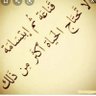 لا تحتاج الحياة أكثر من ذلك
قناعة ثم إبتسامة